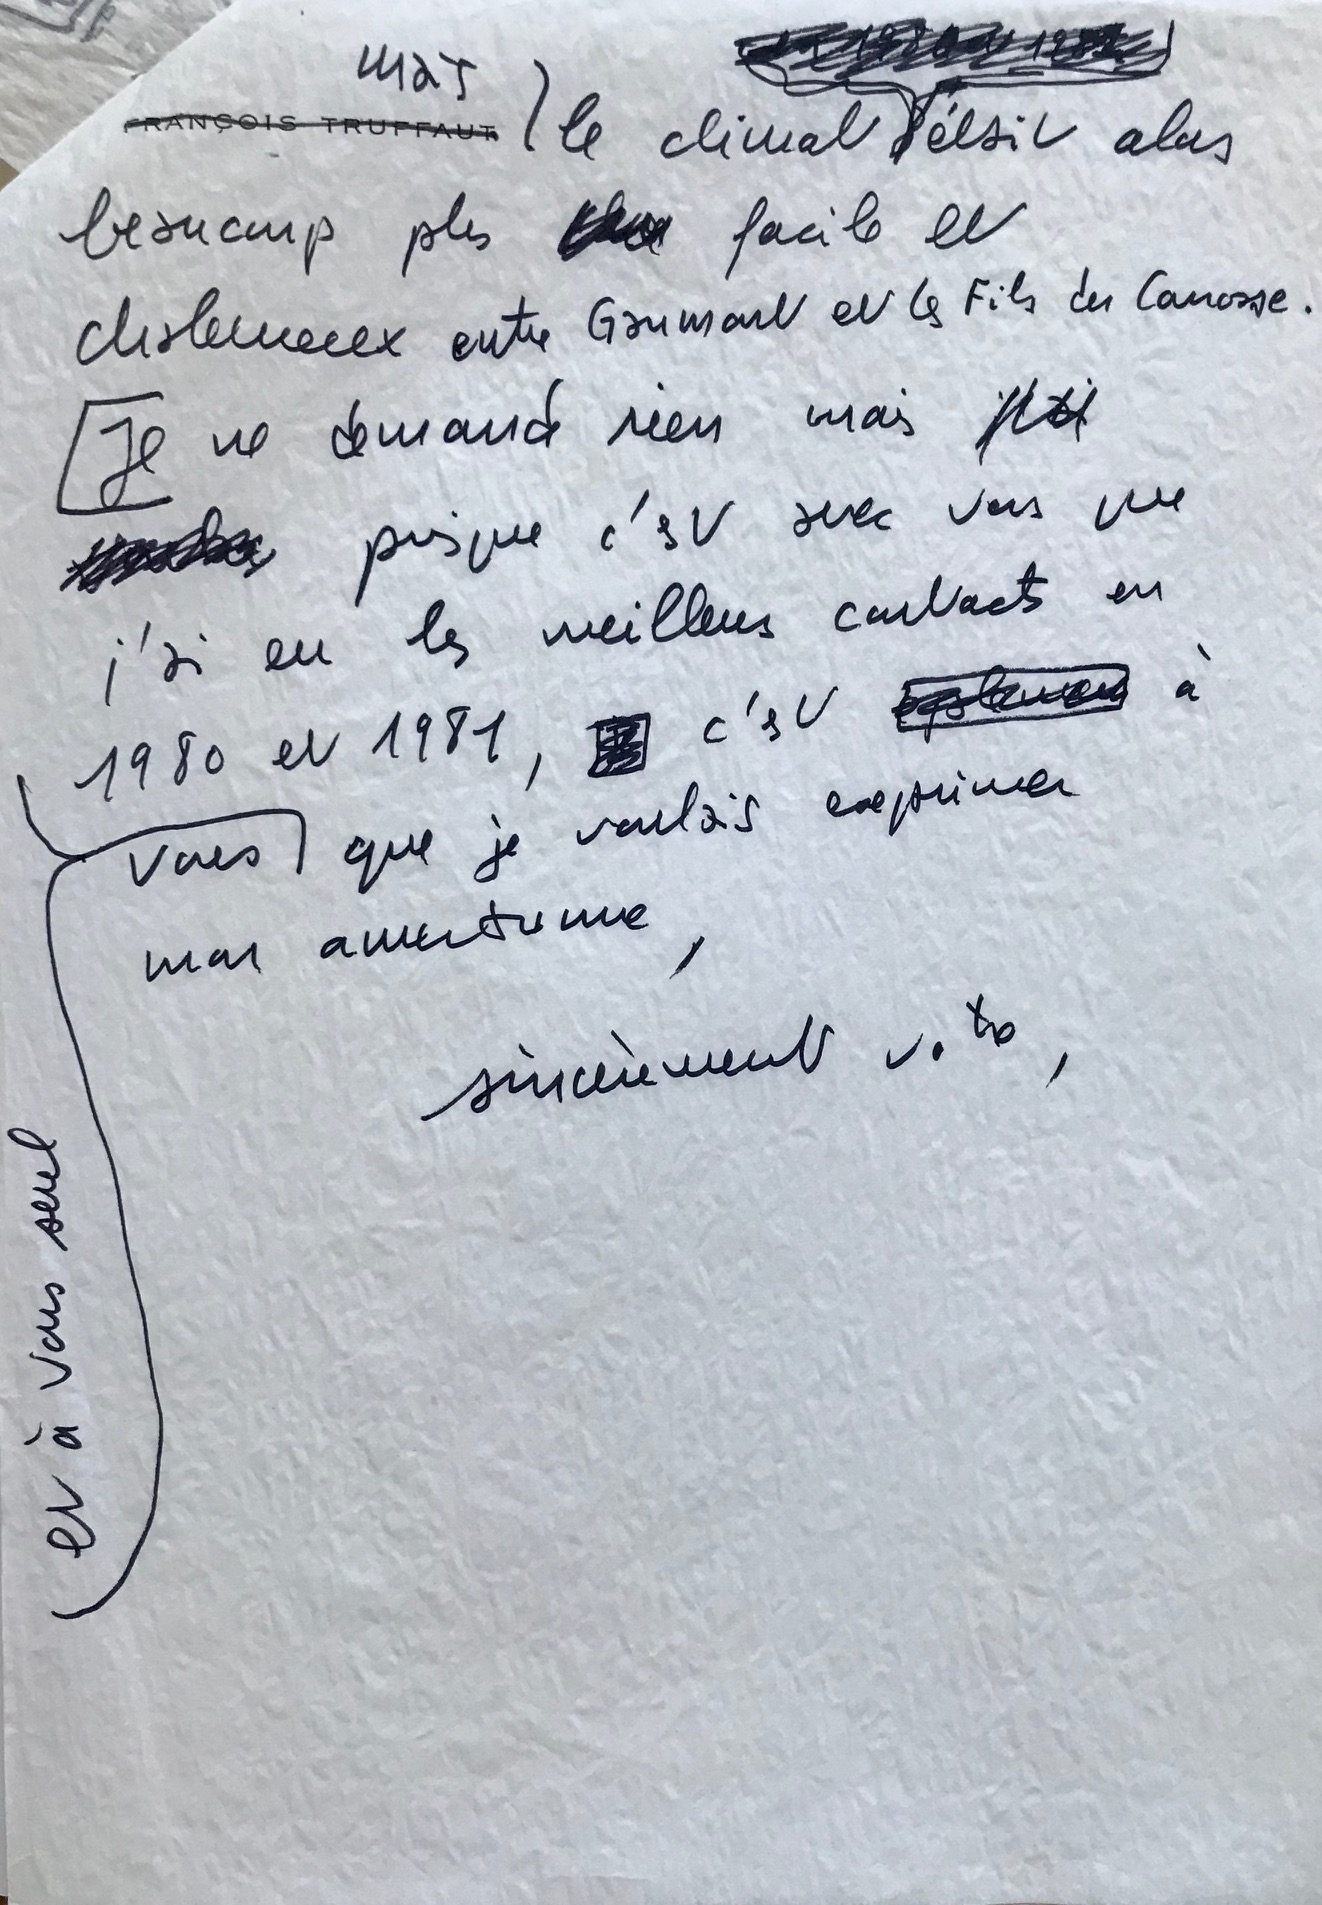 mais
FRANÇOIS TRUFFAUT
le climat était alors
beaucoup plus facile et
chaleureux entre Gaumont et les Films du Carrosse.
Je ne demande rien mais
puisque c'est avec vous que
j'ai eu les meilleurs contacts en
1980 et 1981, c'est à
vous que je voulais exprimer
mon amertume,
sincèrement vôtre,
et à vous seul